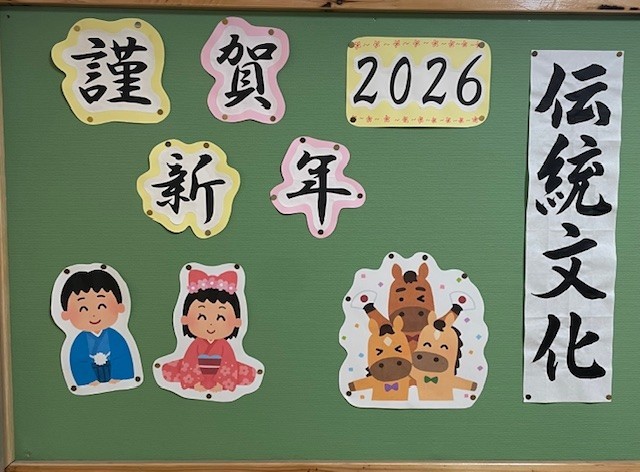 謹賀
2026
新年
伝統文化